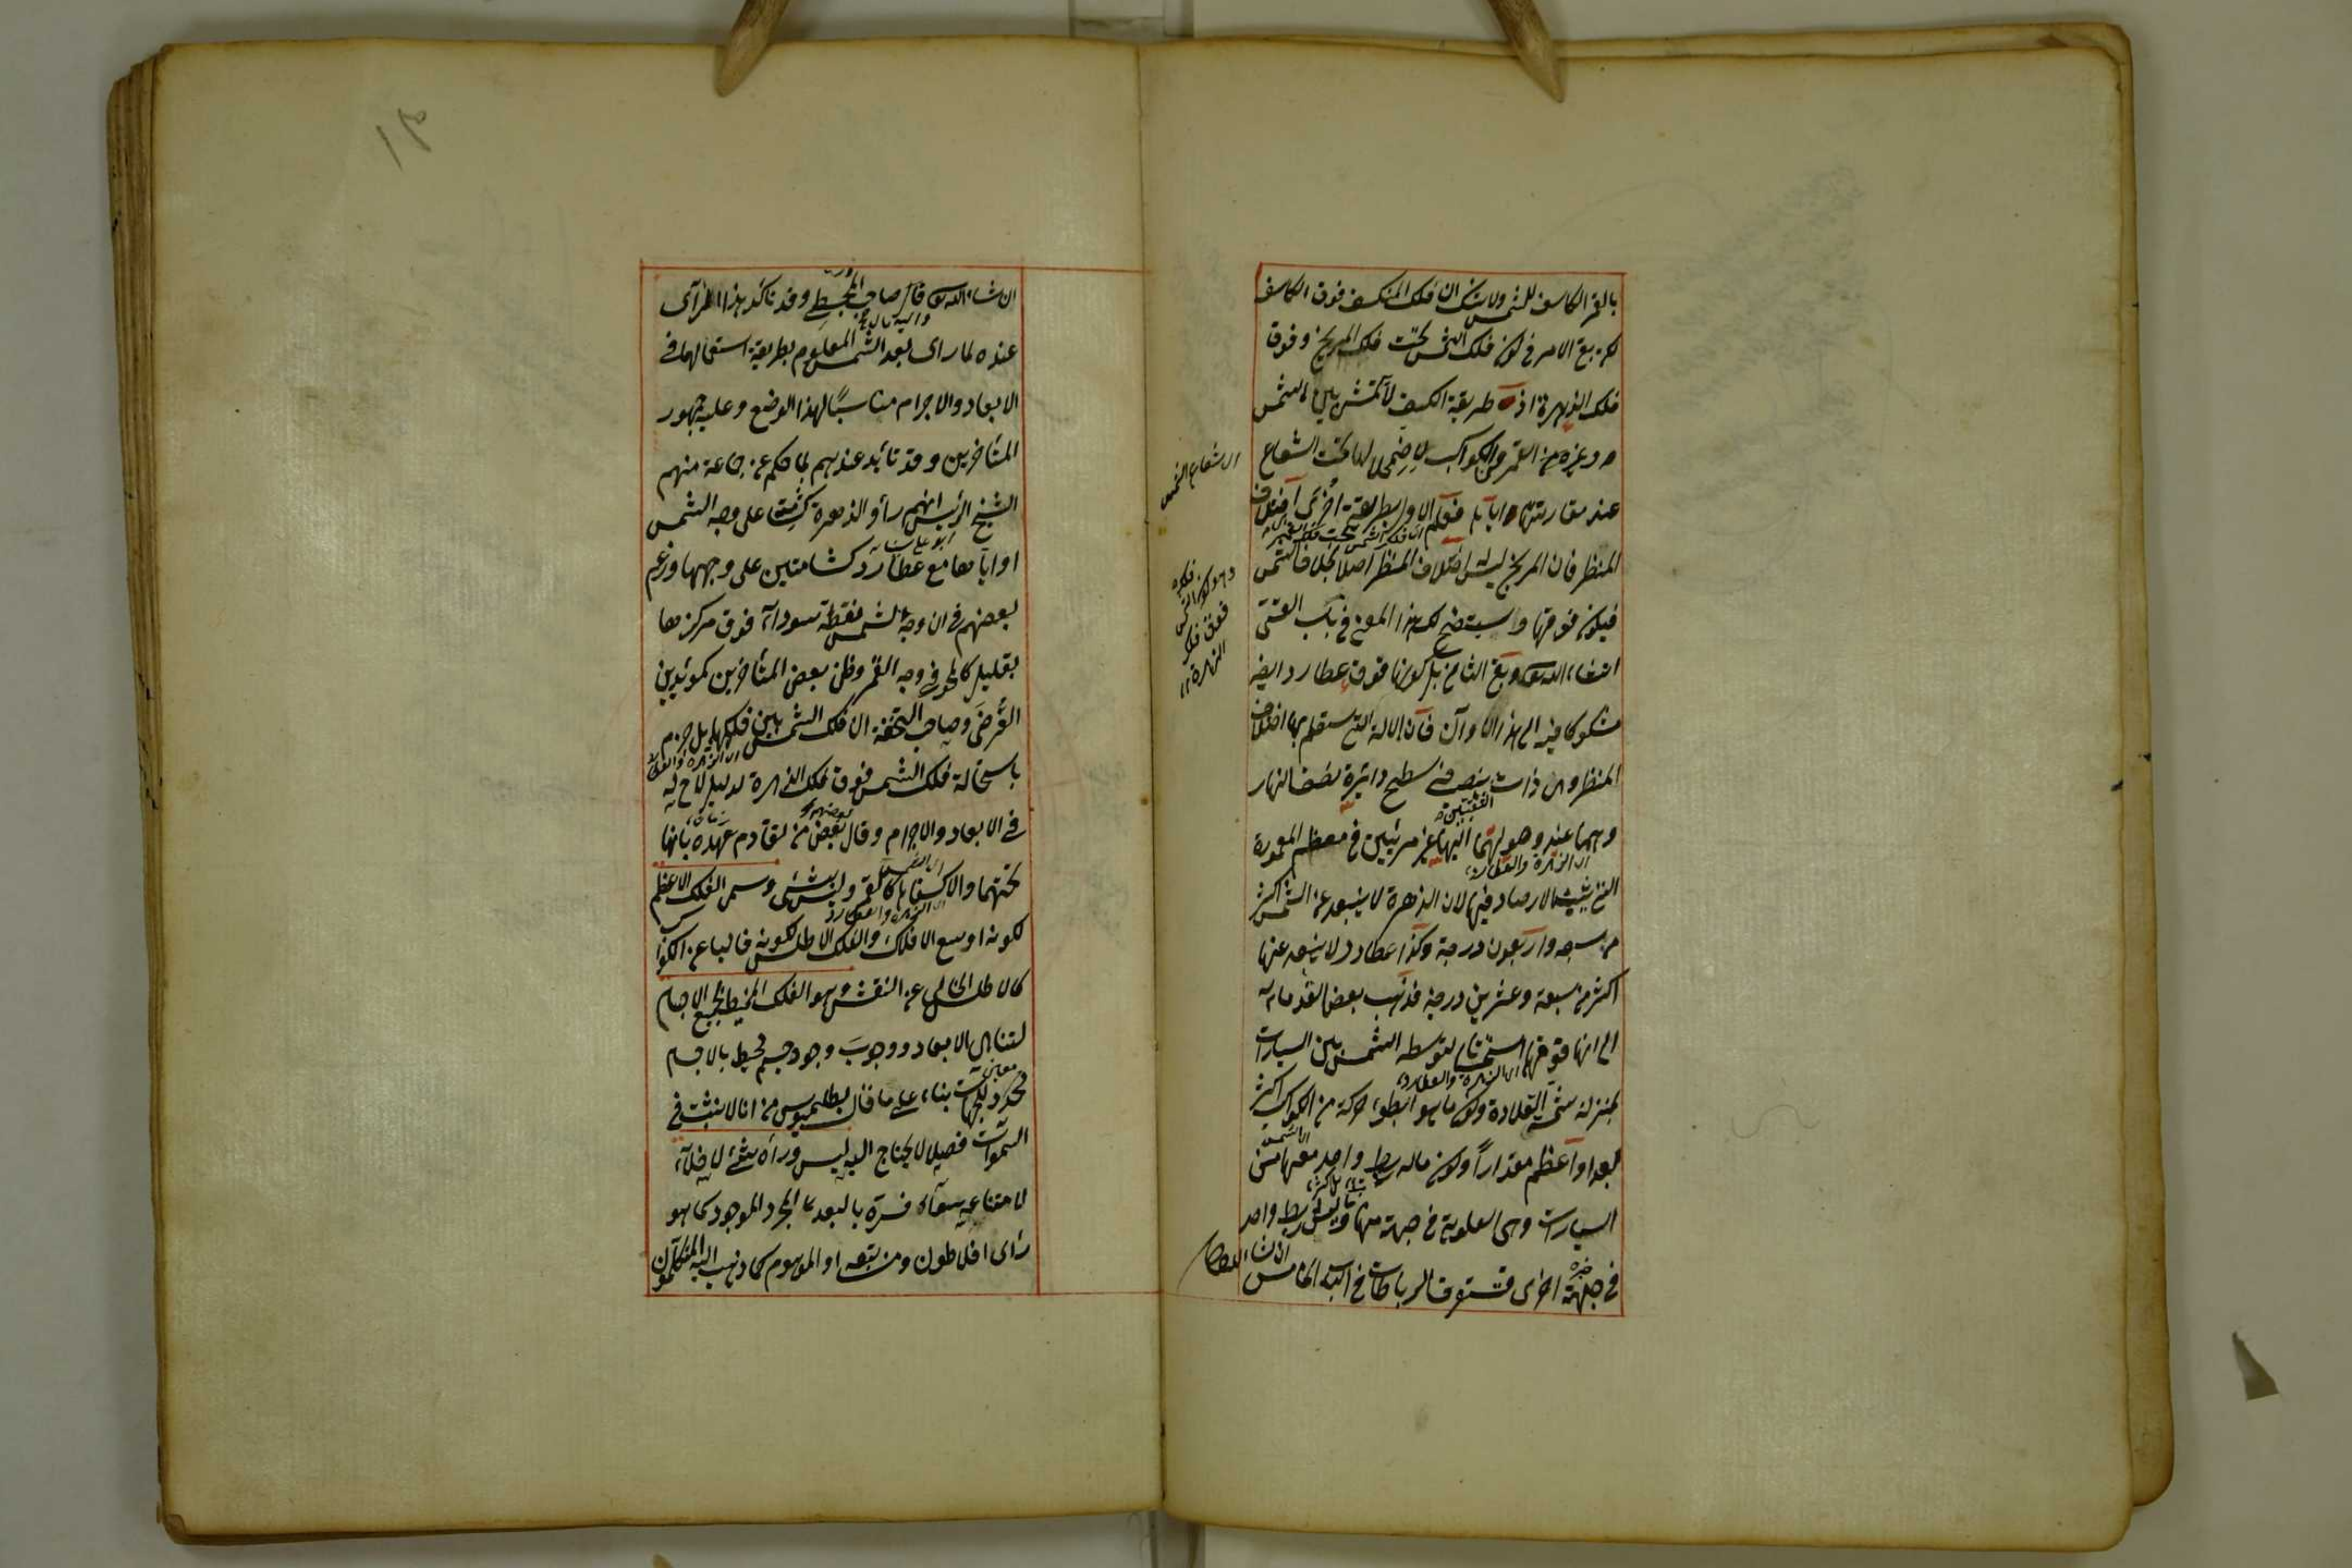 بالقمر الكاسف للشمس ولا شك ان فلك المنكسف فوق الكاسف
لكن بقى الامر فى كون فلك الشمس تحت فلك المريخ وفوق
فلك الزهرة اذ طريقة الكسف لا تتمشى بين الشمس
وغيره من القمر والكواكب لاضمحلالها تحت الشعاع
اى شعاع الشمس
عند مقارنتها اياها فعلم الاول بطريقة اخرى اختلاف
المنظر فان المريخ ليس له اختلاف المنظر اصلا بخلاف الشمس
فيكون فوقها وسيتضح لك هذا المعنى فى باب
وهو كون الشمس فوق فلك الزهرة ١٢
ان شاء الله وبقى الثانى بل كونها فوق عطارد ايضا
مشكوكا فيه الى هذا الاوان فان الآلة التى ستعلم بها اختلاف
المنظر وهى ذات الشعبتين تنصب فى سطح دائرة نصف النهار
وهما عند وصولهما اليها غير مرئيين فى معظم المعمورة
اى الزهرة والعطارد
الارصاد فيها لان الزهرة لا يبعد عن الشمس اكثر
من سبعة واربعون درجة وكذا عطارد لا يبعد عنها
اكثر من سبعة وعشرين درجة فذهب بعض القدماء
الى انها فوقهما لتوسطه الشمس بين السيارات
اى الزهرة والعطارد
بمنزلة شمسة القلادة وكون ما هو ابطؤ حركة من الكواكب اكثر
بعدا واعظم مقدارا وكون ماله ربط واحد معها من
اى الشمس
السيارات وهى العلوية فى جهة منها وما ليس له ربط واحد
فى جهة اخرى وستعرف الرباطات فى الباب الخامس ان شاء الله تعالى
ان شاء الله قال صاحب المجسطى وقد تاكد هذا الراى
عنده لما راى بعد الشمس المعلوم بطريقة استعمالها فى
الابعاد والاجرام مناسبًا لهذا الوضع وعليه جمهور
المتأخرين وقد تأيد عندهم بما حكم عن جماعة منهم
الشيخ الرئيس انهم رأوا الزهرة كشامة على وجه الشمس
ابو على سينا
او اياها مع عطارد كشامتين على وجهها وزعم
بعضهم فى ان وجه الشمس نقطة سوداء فوق مركزها
بقليل كالمحو فى وجه القمر وظن بعض المتأخرين كمؤيدين
العرضى وصاحب التحفة ان فلك الشمس بين فلكيهما بل جزم
اى الزهرة والعطارد
باستحالة فلك الشمس فوق فلك الزهرة لدليل لاح له
فى الابعاد والاجرام وقال بعض من تقادم عهده بانها
تحتهما والا لانكسفا بها كالقمر وليس بشئ وسمى الفلك الاعظم
اى الزهرة والعطارد
لكونه اوسع الافلاك والفلك الاطلس لكونه خاليا عن الكواكب
كالاطلس الخالى عن النقش وهو الفلك المحيط بجميع الاجسام
لتناهى الابعاد ووجوب وجود جسم محيط بالاجسام
محدد للجهات بناء على ما قال بطلميوس من انا لا نثبت فى
السموات فصلا لا يحتاج اليه ليس وراءه شئ لا خلاء
لامتناعه سواء فسره بالبعد المجرد الموجود كما هو
رأى افلاطون ومن تبعه او الموهوم كما ذهب اليه المتكلمون